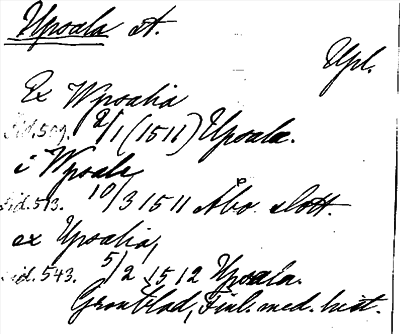 Upsala st.
Upl.
Ex Wpsalia
Sid. 509. 2/1 (1511) Upsala.
i Wpsale
Sid. 513. 10/3 1511 Åbo slott.
ex Upsalia,
Sid. 543. 5/2 1512 Upsala.
Grönblad, Finl. med. hist.